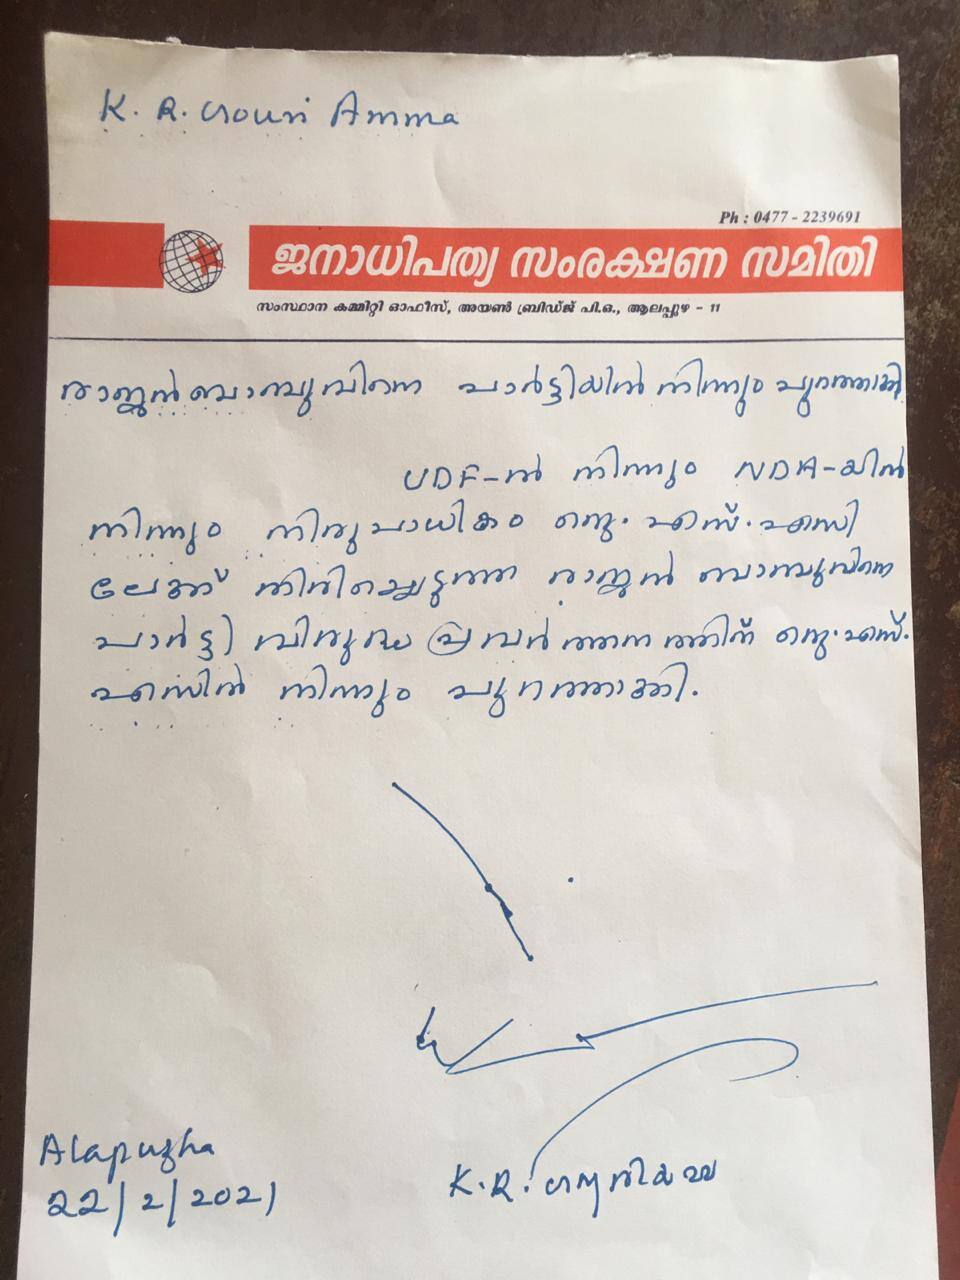 K. R. Gouri Amma
Ph : 0477 - 2239691
ജനാധിപത്യ സംരക്ഷണ സമിതി
സംസ്ഥാന കമ്മിറ്റി ഓഫീസ്, അയൺ ബ്രിഡ്ജ് പി.ഒ., ആലപ്പുഴ - 11
രാജൻ ബാബുവിനെ പാർട്ടിയിൽ നിന്നും പുറത്താക്കി
UDF-ൽ നിന്നും NDA-യിൽ
നിന്നും നിരുപാധികം ജെ.എസ്.എസി
ലേക്ക് തിരിച്ചെടുത്ത രാജൻ ബാബുവിനെ
പാർട്ടി വിരുദ്ധ പ്രവർത്തനത്തിന് ജെ.എസ്.
എസിൽ നിന്നും പുറത്താക്കി.
Alapuzha
22/2/2021
K.R. ഗൗരിയമ്മ